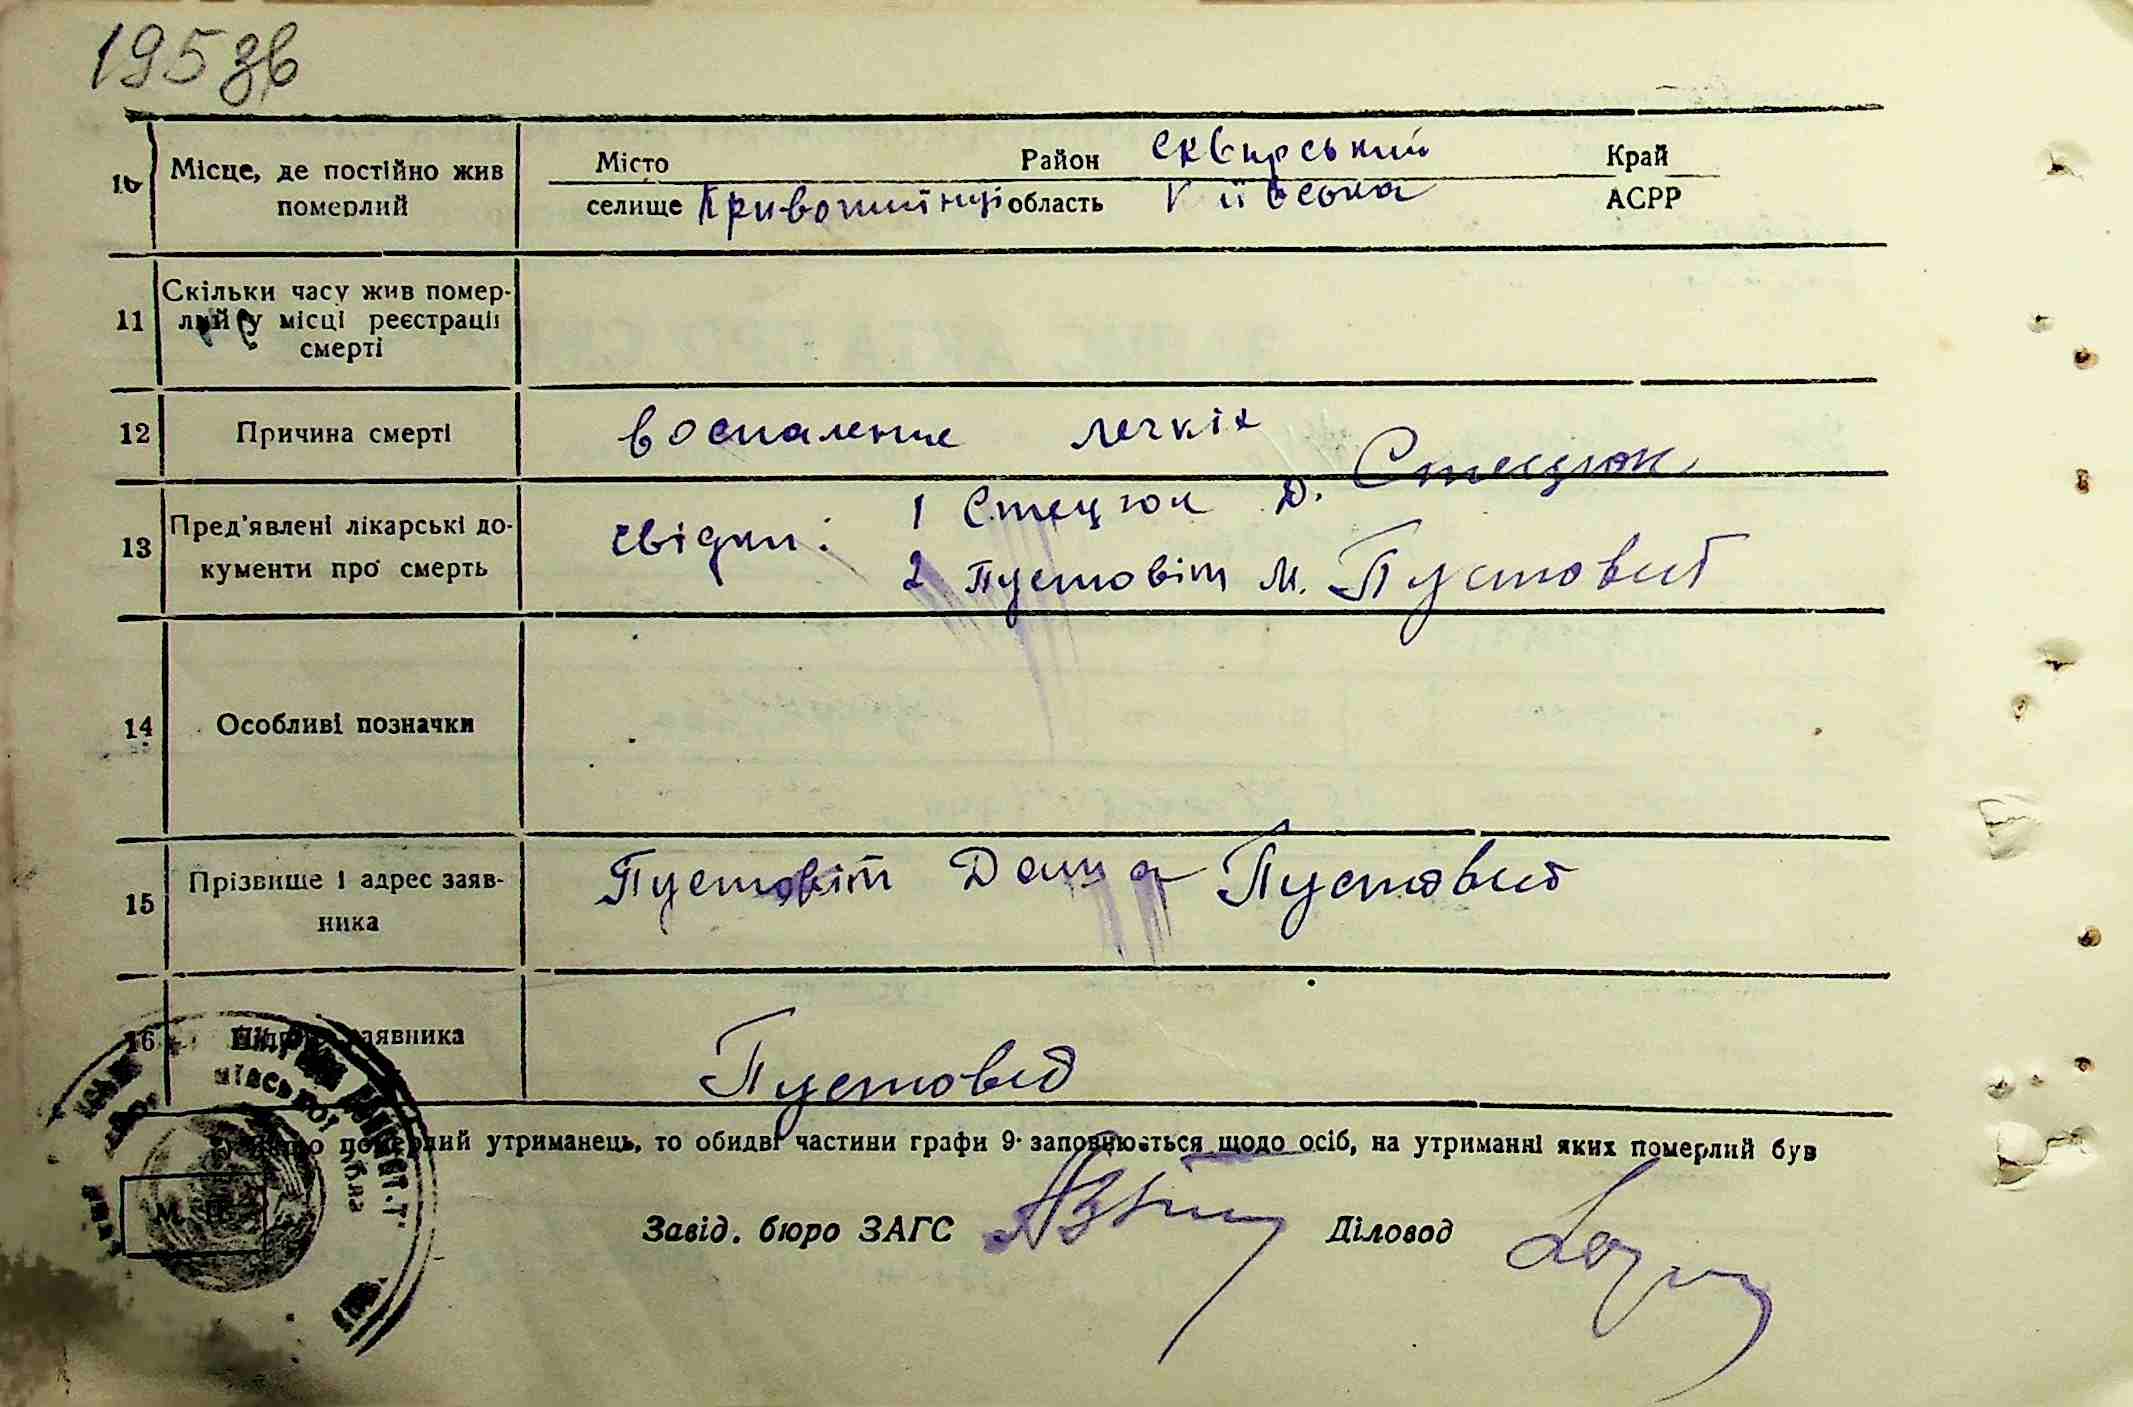 195 зв
10 Місце, де постійно жив померлий
Місто Район Сквирський Край
селище Кривошиїнці область Київська АСРР
11 Скільки часу жив померлий у місці реєстрації смерті
12 Причина смерті воспаление легкіх
13 Пред'явлені лікарські документи про смерть
свідки: 1 Стецюк Д. Стецюк
2 Пустовіт М. Пустовит
14 Особливі позначки
15 Прізвище і адрес заявника Пустовіт Даша Пустовит
16 Підпис заявника Пустовид
померлий утриманець, то обидві частини графи 9 заповнюється щодо осіб, на утриманні яких померлий був
М. П.
Завід. бюро ЗАГС Діловод